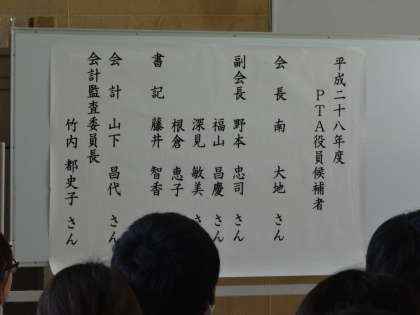 平成二十八年度
PTA役員候補者
会長 南 大地 さん
副会長 野本 忠司 さん
福山 昌慶 さん
深見 敏美 さ
根倉 恵子
書記 藤井 智香
会計 山下 昌代 さん
会計監査委員長
竹内 都史子 さん